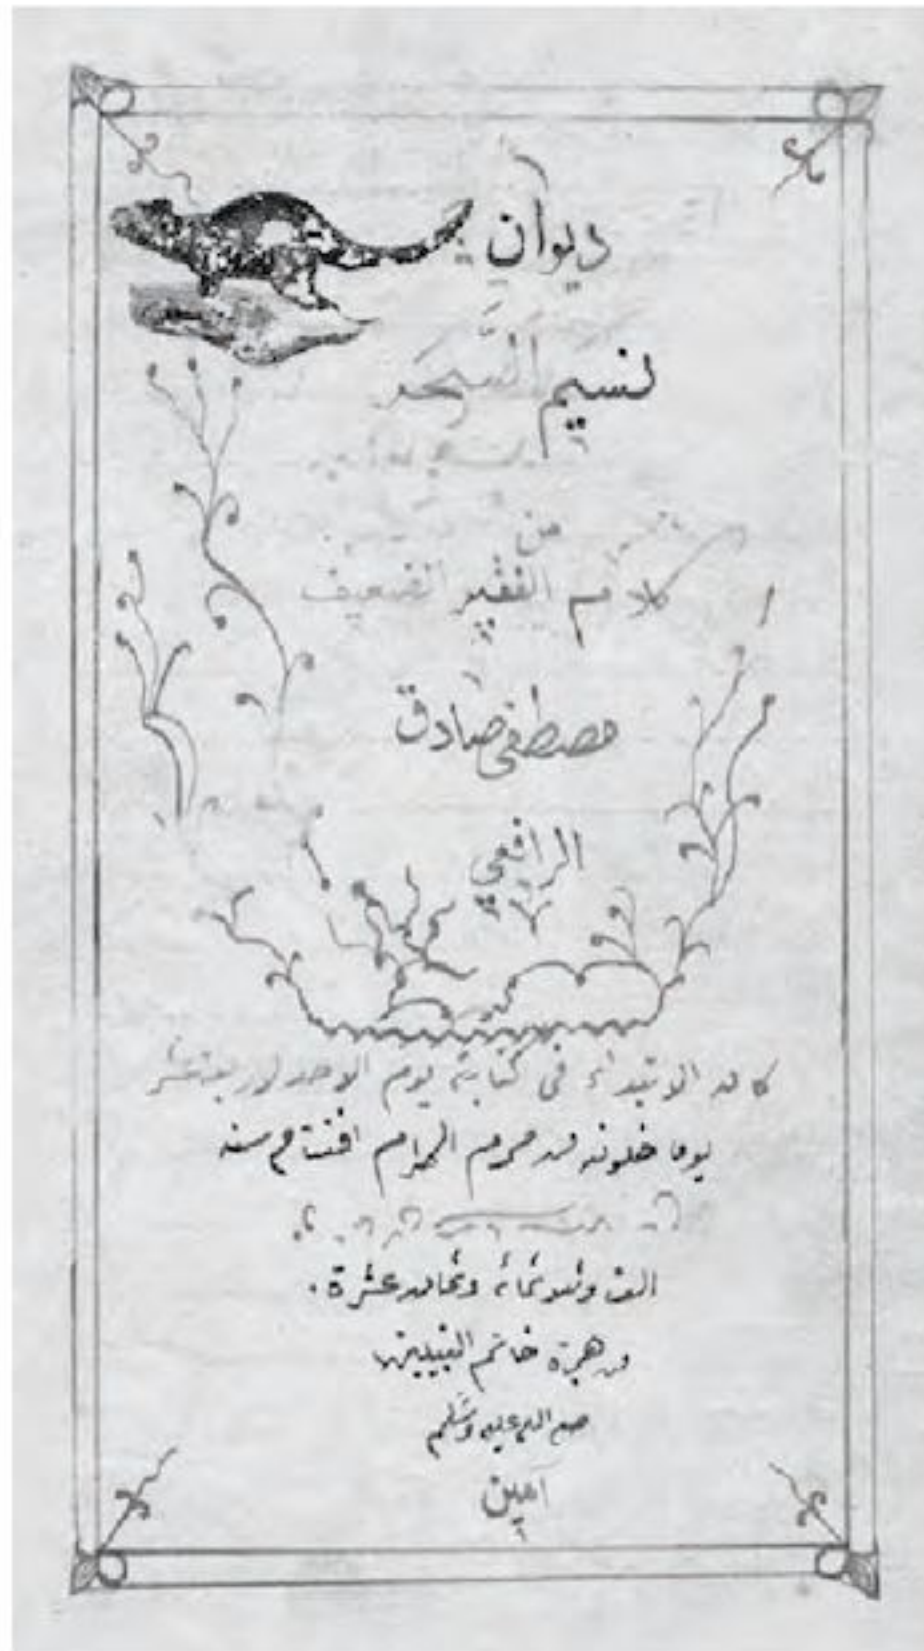 ديوان
نسيم السَّحَر
من
كلام الفقير الضعيف
مصطفى صادق
الرافعي
كان الابتداء في كتابته يوم الاحد لاربعة عشر
يوما خلون من محرم الحرام افتتاح سنة
الف وثلاثمائة وثمان عشرة.
من هجرة خاتم النبيين
صلى الله عليه وسَلم
آمين